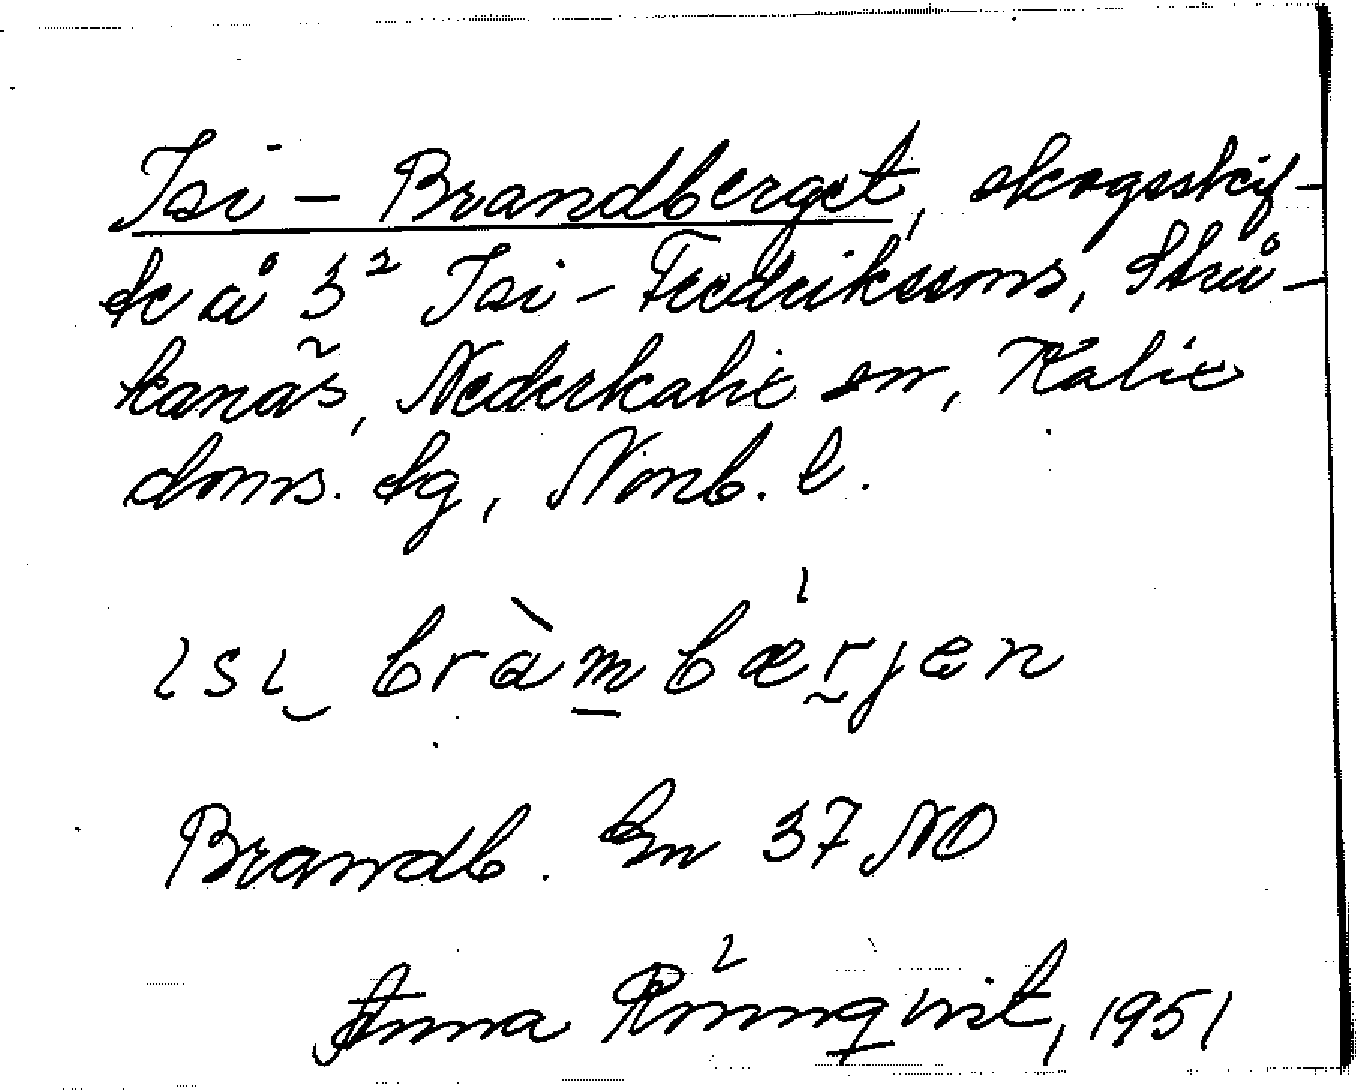 Isi-Brandberget, skogsskif-
te å 3² Isi-Fredrikssons, Strå-
kanäs, Nederkalix sn, Kalix
doms. tg, Norrb. l.
ısı bràmbærjen
Brandb. En 37 NO
Anna Rönnqvist, 1951